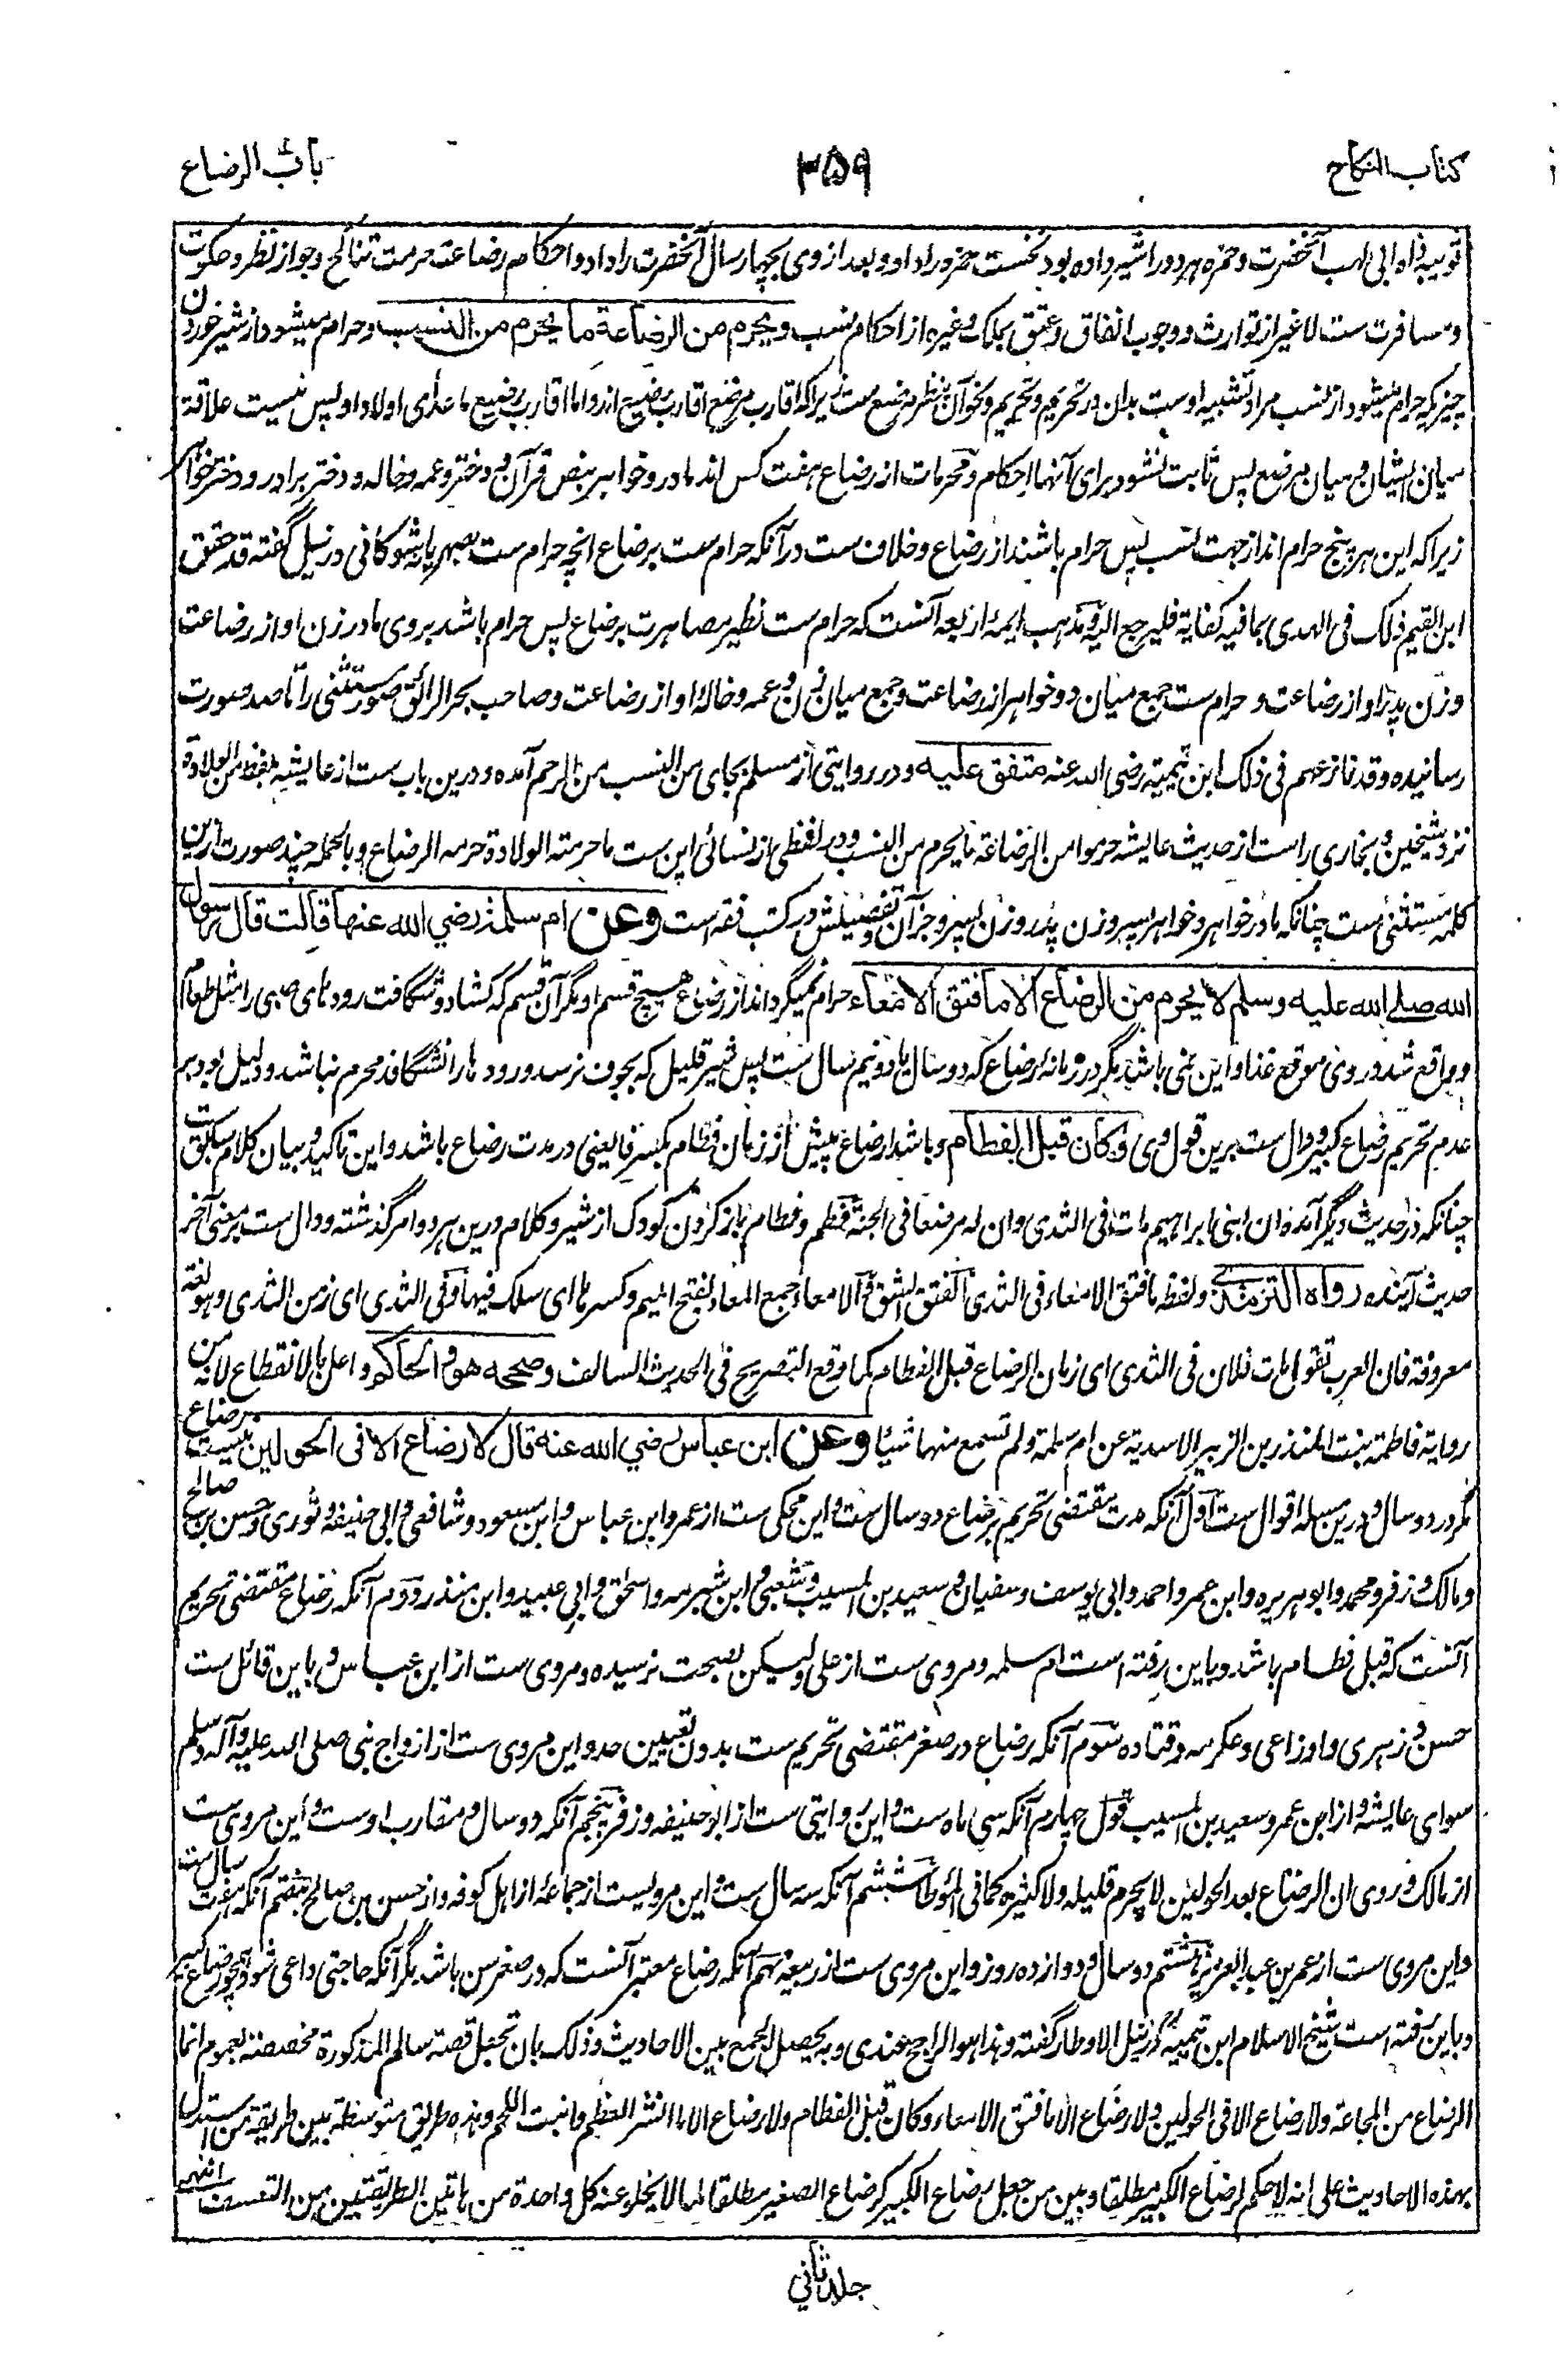 کتاب النکاح
۳۵۹
باب الرضاع
ثویبه داه ابی لهب آنحضرت و حمزه هر دو را شیر داده بود نخست حمزه را داد و بعد از وی بچهار سال آنحضرت را داد و احکام رضاعت حرمت تناکح و جواز نظر و خلوت
و مسافرت ست لا غیر از توارث و وجوب انفاق و عتق بملک و غیره از احکام نسب ویحرم من الرضاعة ما یحرم من النسب و حرام میشود از شیر خوردن
چیزیکه حرام میشود از نسب مراد تشبیه اوست بدان در تحریم و نحو آن بنظر مرضع ست زیراکه اقارب مرضع اقارب رضیع اند و اما اقارب رضیع ماعدای اولاد او پس نیست علاقه
میان ایشان و میان مرضع پس ثابت نشود برای آنها احکام و محرمات از رضاع هفت کس اند مادر و خواهر بنص قرآن و دختر و عمه و خاله و دختر برادر و دختر خواهر
زیراکه این هر پنج حرام اند از جهت نسب پس حرام باشند از رضاع و خلاف ست در آنکه حرام ست برضاع انچه حرام ست بصهر یا نه شوکانی در نیل گفته قد حقق
ابن القیم ذلک فی الهدی بما فیه کفایة فلیرجع الیه و مذهب ایمهٔ اربعه آنست که حرام ست نظیر مصاهرت برضاع پس حرام باشد بروی مادر زن او از رضاعت
و زن پدر او از رضاعت و حرام ست جمع میان دو خواهر از رضاعت و جمع میان زن و عمه و خالهٔ او از رضاعت و صاحب بحر الرائق صور مستثنی را تا صد صورت
رسانیده و قد نازعهم فی ذلک ابن تیمیة رضی الله عنه متفق علیه و در روایتی از مسلم بجای من النسب من الرحم آمده و درین باب ست از عایشه بلفظ من الولادة
نزد شیخین و بخاری راست از حدیث عایشه حرموا من الرضاعة ما یحرم من النسب و در لفظی از نسائی این ست ما حرمته الولادة حرمه الرضاع و بالجمله چند صورت ازین
کلمه مستثنی ست چنانکه مادر خواهر و خواهر پسر و زن پدر و زن پسر و جز آن و تفصیلش در کتب فقه است وعن ام سلمة رضي الله عنها قالت قال رسول
الله صلے الله علیه وسلم لا یحرم من الرضاع الا ما فتق الامعاء حرام نمیگرداند از رضاع هیچ قسم او مگر آن قسم که کشاد و شگافت رودهای صبی را مثل طعام
و واقع شد در وی موقع غذا و این نمی باشد مگر در زمانهٔ رضاع که دو سال یا دو نیم سال ست پس شیر قلیل که بجوف نرسد و رودها را نشگافد محرم نباشد و دلیل بود بر
عدم تحریم رضاع کبیر و دال ست برین قول وی وکان قبل الفطام و باشد ارضاع پیش از زمان فطام بکسر فا یعنی در مدت رضاع باشد و این تاکید و بیان کلام سابق ست
چنانکه در حدیث دیگر آمده ان ابنی ابراهیم مات فی الثدی وان له مرضعا فی الجنة فطم و فطام باز کردن کودک از شیر و کلام درین هر دو امر گذشته و دال ست بر معنی آخر
حدیث آینده رواه الترمذي و لفظه ما فتق الامعاء فی الثدی الفتق الشق و الامعاء جمع المعا بفتح المیم وکسرها ای سلک فیها وفی الثدی ای زمن الثدی وهو لغة
معروفة فان العرب تقول مات فلان فی الثدی ای زمان الرضاع قبل الفطام کما وقع التصریح فی الحدیث السالف وصححه هو والحاکم و اعل بالانقطاع لانه من
روایة فاطمة بنت المنذر بن الزبیر الاسدیة عن ام سلمة ولم تسمع منها شیئا وعن ابن عباس رضي الله عنه قال لا رضاع الا فی الحولین نیست رضاع
مگر در دو سال و درین مسئله اقوال ست اول آنکه مدت مقتضی تحریم برضاع دو سال ست و این محکی ست از عمر و ابن عباس و ابن مسعود و شافعی و ابی حنیفه و ثوری و حسن بن صالح
و مالک و زفر و محمد و ابو هریره و ابن عمر و احمد و ابی یوسف و سفیان و سعید بن المسیب و شعبی و ابن شبرمه و اسحق و ابی عبید و ابن منذر دوم آنکه رضاع مقتضی تحریم
آنست که قبل فطام باشد و باین رفته است ام سلمه و مروی ست از علی ولیکن بصحت نرسیده و مروی ست از ابن عباس و باین قائل ست
حسن و زهری و اوزاعی و عکرمه و قتاده سوم آنکه رضاع در صغر مقتضی تحریم ست بدون تعیین حد و این مروی ست از ازواج نبی صلی الله علیه و آله وسلم
سوای عایشه و از ابن عمر و سعید بن المسیب قول چهارم آنکه سی ماه ست و این روایتی ست از ابو حنیفه و زفر پنجم آنکه دو سال و مقارب اوست و این مروی ست
از مالک و روی ان الرضاع بعد الحولین لا یحرم قلیله ولا کثیره کما فی الموطا ششم آنکه سه سال ست و این مرویست از جماعهٔ از اهل کوفه و از حسن بن صالح هفتم آنکه هفت سال ست
و این مروی ست از عمر بن عبد العزیز هشتم دو سال و دوازده روز و این مروی ست از ربیعه نهم آنکه رضاع معتبر آنست که در صغر سن باشد مگر آنکه حاجتی داعی شود همچو رضاع کبیر
و باین رفته است شیخ الاسلام ابن تیمیه در نیل الاوطار گفته و هذا هو الراجح عندی و به یحصل الجمع بین الاحادیث و ذلک بان تجعل قصة سالم المذکورة مخصصة لعموم انما
الرضاع من المجاعة ولا رضاع الا فی الحولین ولا رضاع الا ما فتق الامعاء وکان قبل الفطام ولا رضاع الا ما انشز العظم وانبت اللحم وهذه طریق متوسطة بین طریقة من استدل
بهذه الاحادیث علی انه لا حکم لرضاع الکبیر مطلقا وبین من جعل رضاع الکبیر کرضاع الصغیر مطلقا لما لا یخلو عنه کل واحدة من هاتین الطریقتین من التعسف انتهی
جلد ثاني